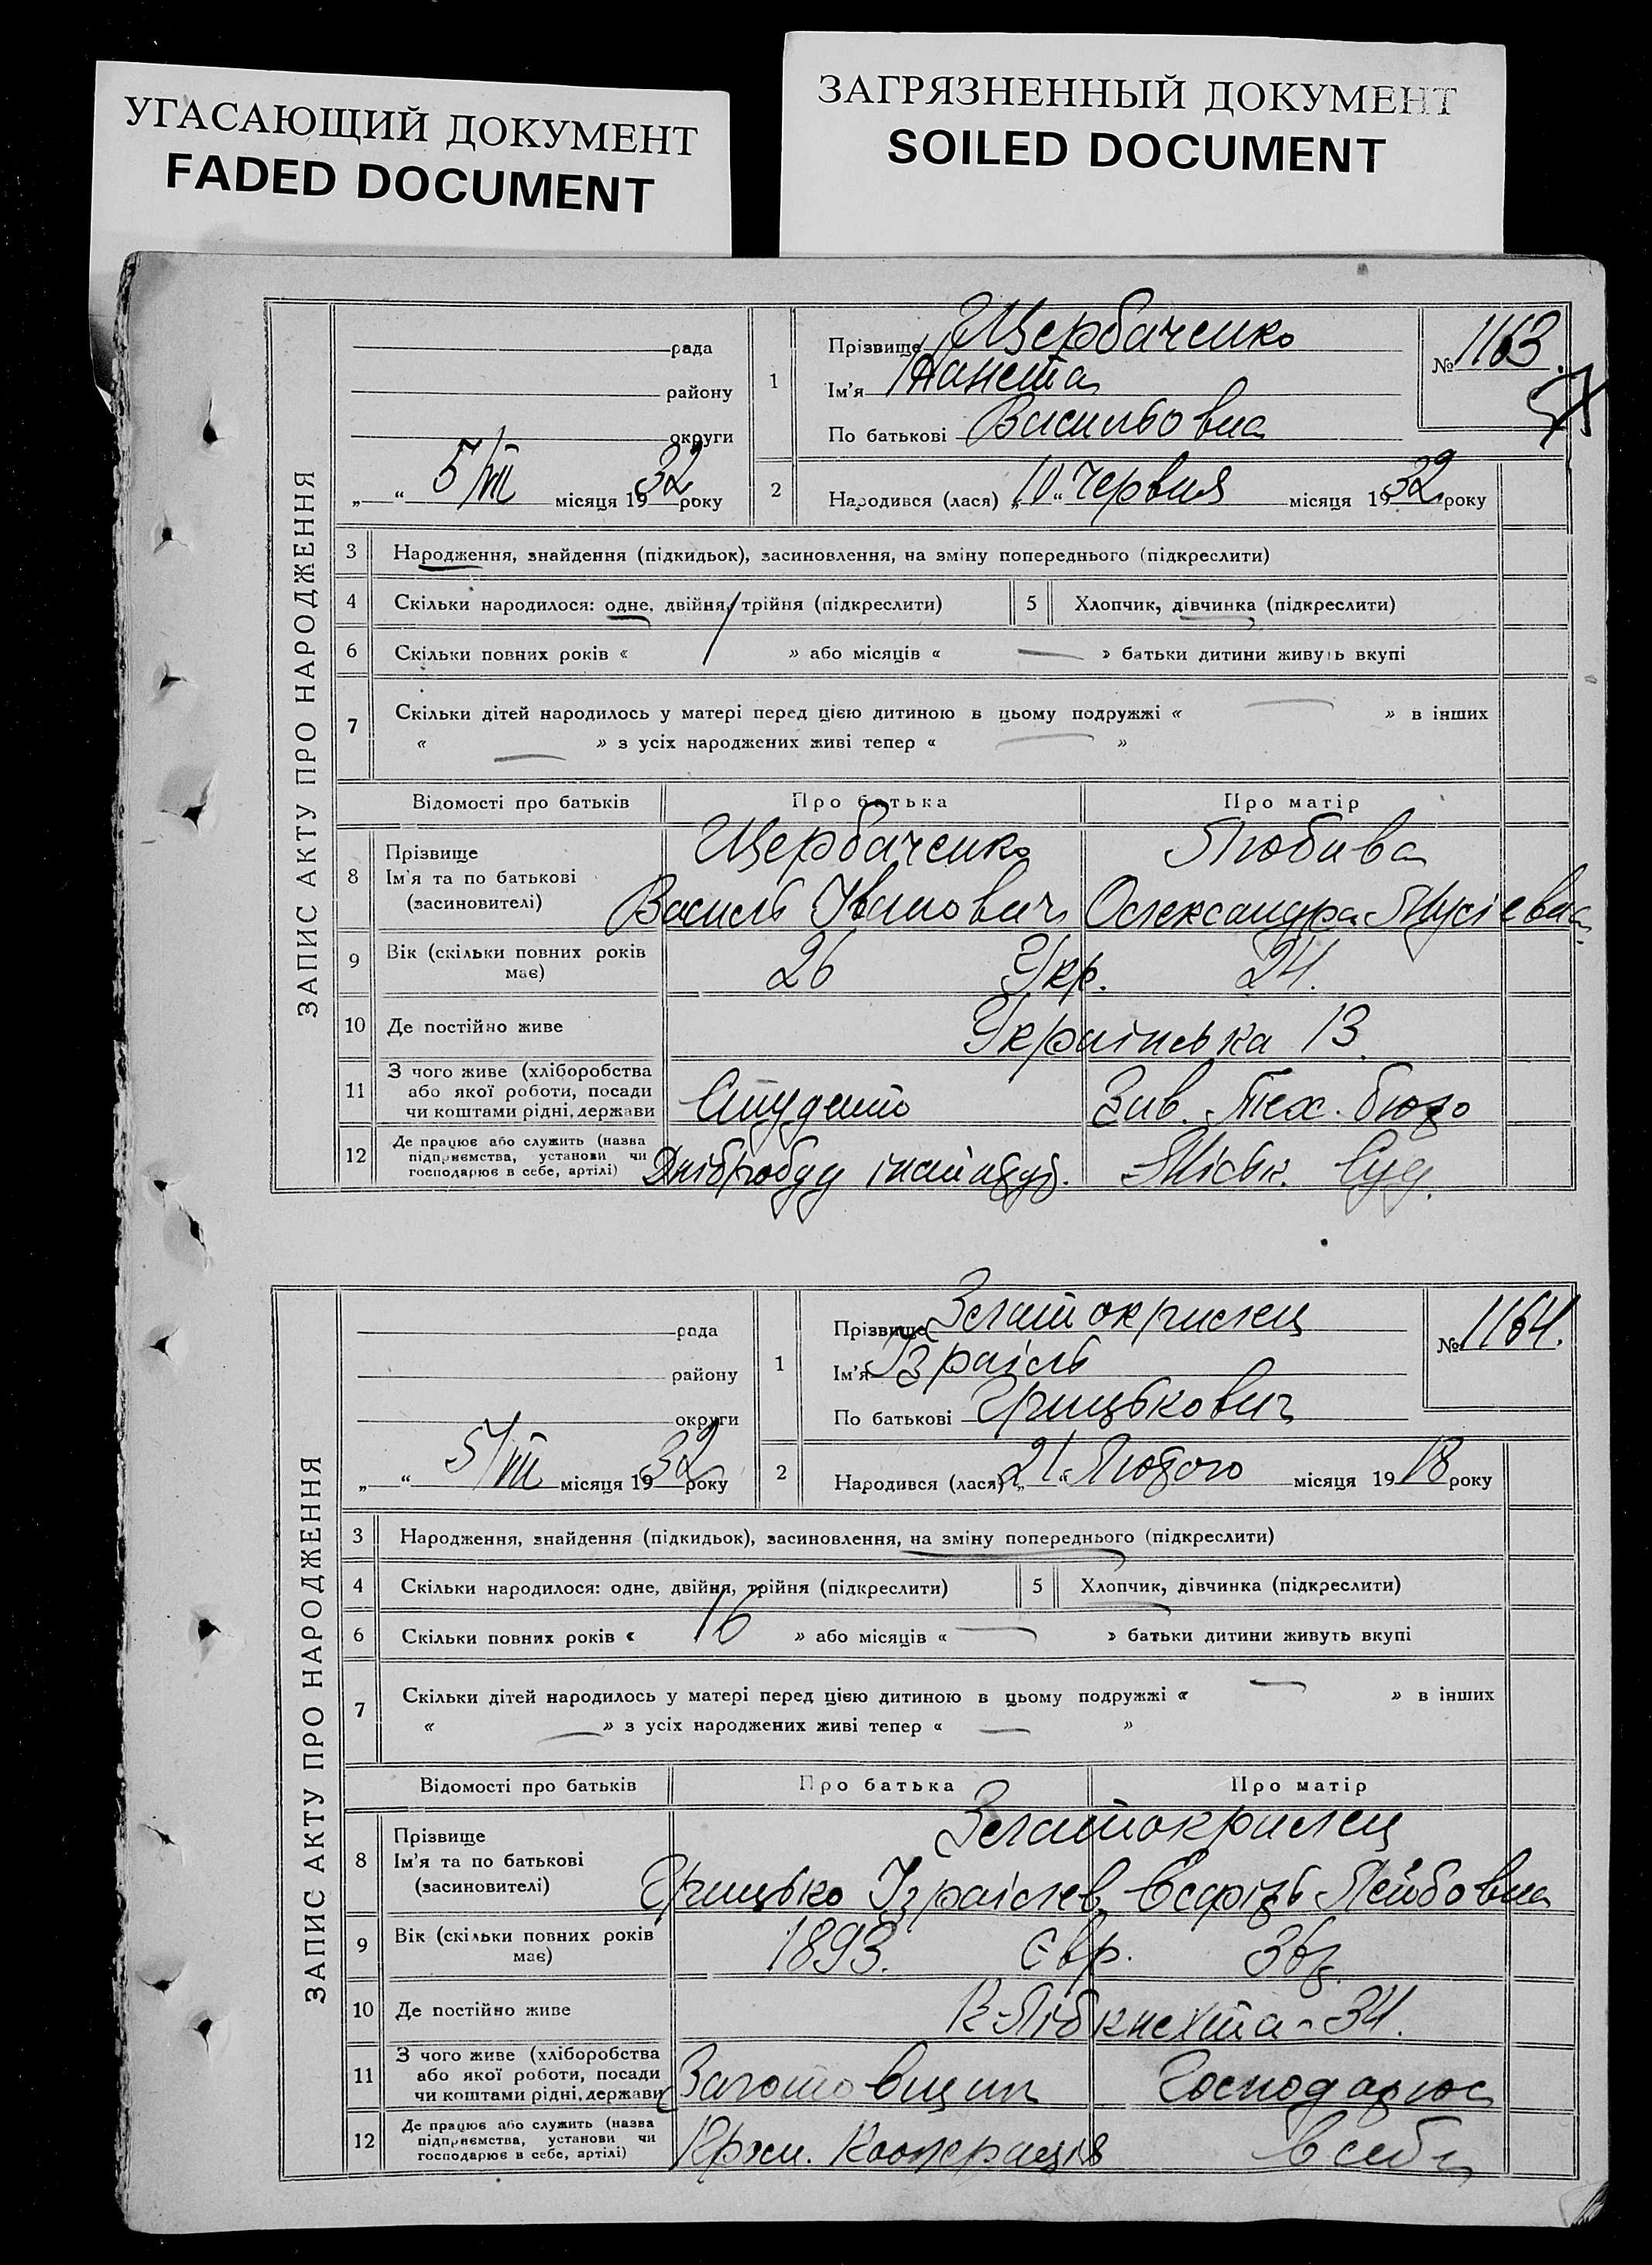 УГАСАЮЩИЙ ДОКУМЕНТ
FADED DOCUMENT
ЗАГРЯЗНЕННЫЙ ДОКУМЕНТ
SOILED DOCUMENT
ЗАПИС АКТУ ПРО НАРОДЖЕННЯ
рада
району
округи
„ “ 5/VIII місяця 1932 року
1 Прізвище Щербаченко
Ім'я Жанета
По батькові Васильовна
№ 1163.
2 Народився (лася) „10“ червня місяця 1932 року
3 Народження, знайдення (підкидьок), засиновлення, на зміну попереднього (підкреслити)
4 Скільки народилося: одне, двійня, трійня (підкреслити) 5 Хлопчик, дівчинка (підкреслити)
6 Скільки повних років « 1 » або місяців « — » батьки дитини живуть вкупі
7 Скільки дітей народилось у матері перед цією дитиною в цьому подружжі « — » в інших
« — » з усіх народжених живі тепер « — »
Відомості про батьків Про батька Про матір
8 Прізвище
Ім'я та по батькові
(засиновителі)
Щербаченко Любива
Василь Іванович Олександра Мусіевна
9 Вік (скільки повних років
має)
26 Укр. 24.
10 Де постійно живе Українська 13.
11 З чого живе (хліборобства
або якої роботи, посади
чи коштами рідні, держави
Студент Зав. Тех. бюро
12 Де працює або служить (назва
підприємства, установи чи
господарює в себе, артілі)
Міськ. Суд.
ЗАПИС АКТУ ПРО НАРОДЖЕННЯ
рада
району
округи
„ “ 5/VIII місяця 1932 року
1 Прізвище Златокрилец
Ім'я Ізраіль
По батькові Грицькович
№ 1164.
2 Народився (лася) „21“ Лютого місяця 1918 року
3 Народження, знайдення (підкидьок), засиновлення, на зміну попереднього (підкреслити)
4 Скільки народилося: одне, двійня, трійня (підкреслити) 5 Хлопчик, дівчинка (підкреслити)
6 Скільки повних років « 16 » або місяців « — » батьки дитини живуть вкупі
7 Скільки дітей народилось у матері перед цією дитиною в цьому подружжі « — » в інших
« — » з усіх народжених живі тепер « — »
Відомості про батьків Про батька Про матір
8 Прізвище
Ім'я та по батькові
(засиновителі)
Златокрилец
Грицько Ізраілев Лейбовна
9 Вік (скільки повних років
має)
1893. Євр.
10 Де постійно живе К-Лібкнехта-34.
11 З чого живе (хліборобства
або якої роботи, посади
чи коштами рідні, держави
Заготовщик Господарює
12 Де працює або служить (назва
підприємства, установи чи
господарює в себе, артілі)
Кооперація в себе